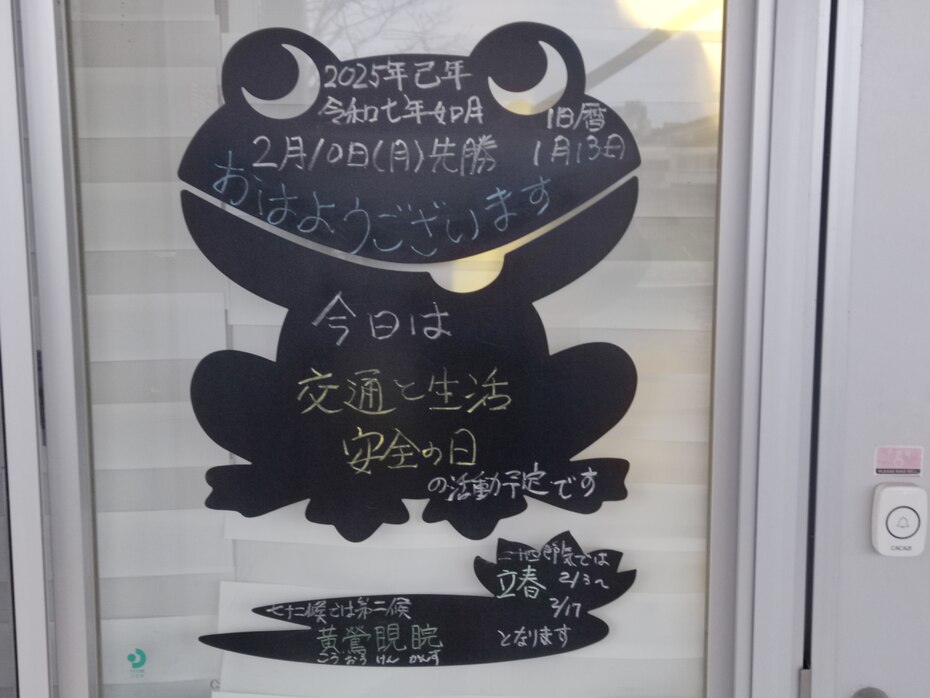 2025年己年
令和七年如月
旧暦
2月10日(月)先勝
1月13日
おはようございます
今日は
交通と生活
安全の日
の活動予定です
二十四節気では
立春 2/3〜
2/17
七十二候では第二候
黄鶯睍睆
こうおうけんかんす
となります
PLEASE RING BELL
CACAZI